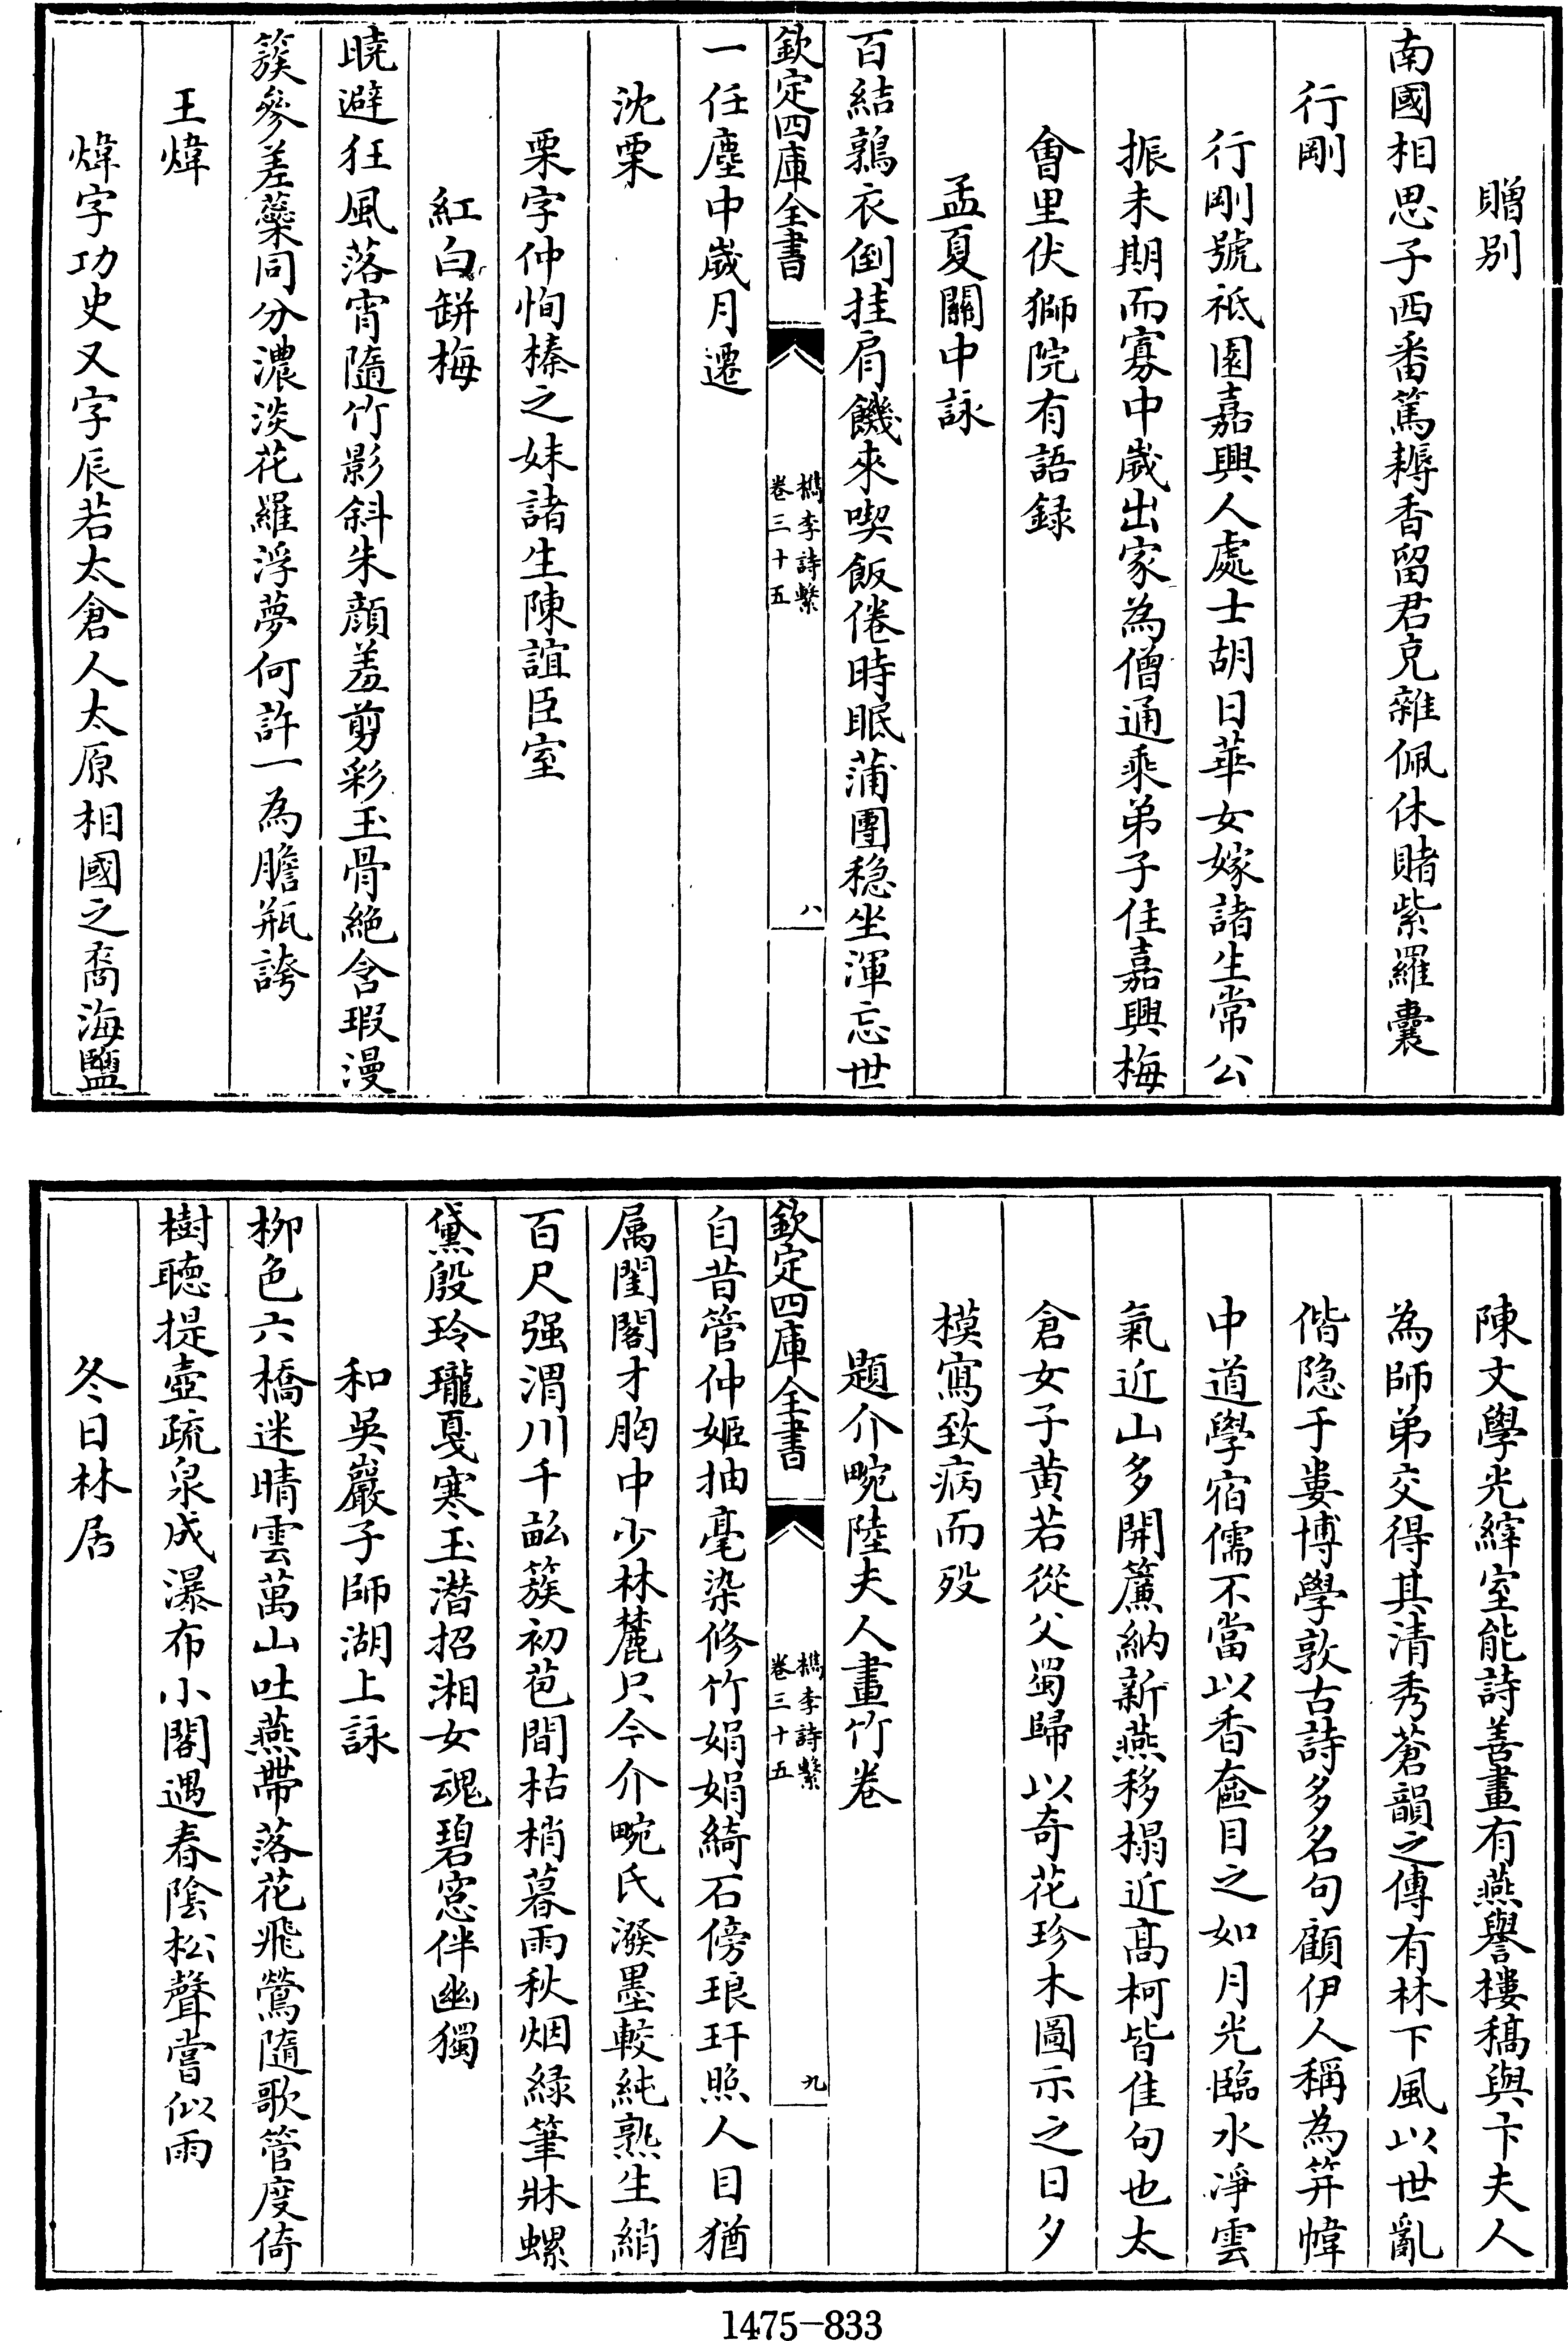 贈别
南國相思子西番篤耨香留君克雜佩休賭紫羅囊
行剛
行剛號祗園嘉興人處士胡日華女嫁諸生常公
振未期而寡中歲出家為僧通乘弟子住嘉興梅
會里伏獅院有語録
孟夏關中詠
百結鶉衣倒挂肩饑來喫飯倦時眠蒲團穏坐渾忘世
欽定四庫全書
檇李詩繫
卷三十五
八
一任塵中歲月遷
沈栗
栗字仲恂榛之妹諸生陳誼臣室
紅白缾梅
曉避狂風落宵隨竹影斜朱顔羞剪彩玉骨絶含瑕漫
簇參差蘂同分濃淡花羅浮夢何許一為膽瓶誇
王煒
煒字功史又字辰若太倉人太原相國之裔海鹽
陳文學光縡室能詩善畫有燕譽樓稿與卞夫人
為師弟交得其清秀蒼韻之傳有林下風以世亂
偕隐于婁博學敦古詩多名句顧伊人稱為笄幃
中道學宿儒不當以香奩目之如月光臨水凈雲
氣近山多開簾納新燕移榻近髙柯皆佳句也太
倉女子黄若從父蜀歸以奇花珍木圖示之日夕
模寫致病而殁
題介畹陸夫人畫竹卷
欽定四庫全書
檇李詩繫
卷三十五
九
自昔管仲姬抽毫染修竹娟娟綺石傍琅玕照人目猶
属閨閣才胸中少林麓只今介畹氏潑墨較純熟生綃
百尺强渭川千畝簇初苞間枯梢暮雨秋烟緑筆牀螺
黛殷玲瓏戞寒玉潜招湘女魂碧窓伴幽獨
和吳巖子師湖上詠
栁色六橋迷晴雲萬山吐燕帶落花飛鶯隨歌管度倚
樹聴提壺疏泉成瀑布小閣遇春陰松聲嘗似雨
冬日林居
1475-833